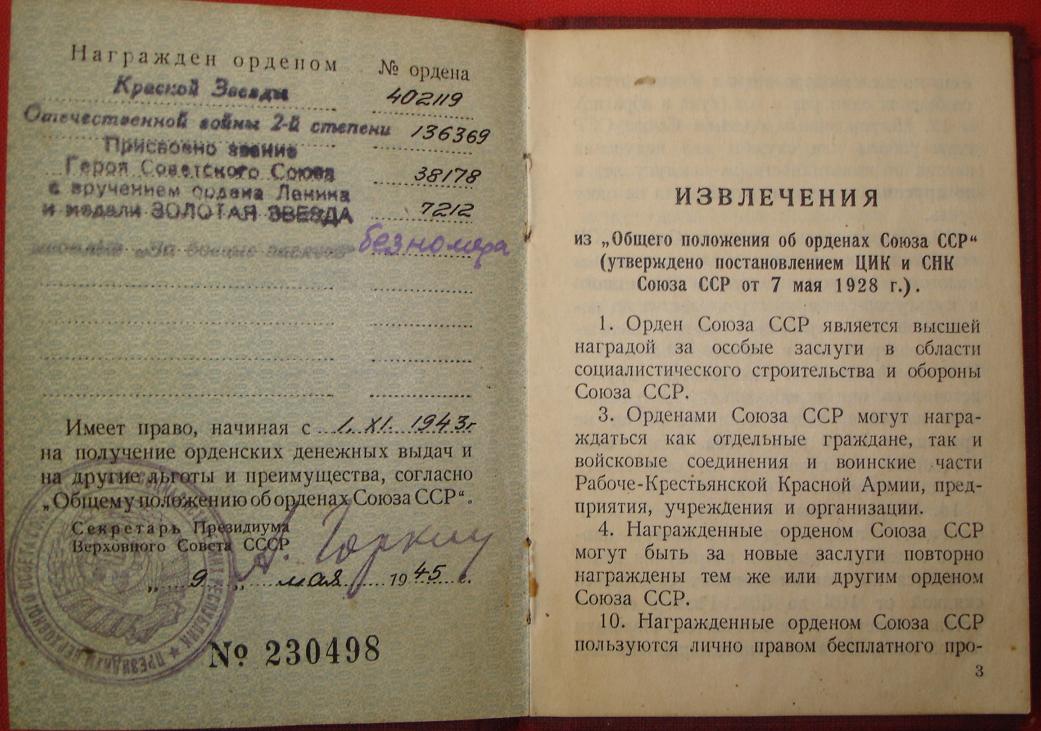 Награжден орденом № ордена
Красной Звезды 402119
Отечественной войны 2-й степени 136369
Присвоено звание
Героя Советского Союза 38178
с вручением ордена Ленина
и медали ЗОЛОТАЯ ЗВЕЗДА 7212
„За боевые заслуги“ без номера
Имеет право, начиная с 1. XI. 1943г
на получение орденских денежных выдач и
на другие льготы и преимущества, согласно
„Общему положению об орденах Союза ССР“.
Секретарь Президиума
Верховного Совета СССР
А. Горкин
„ 9 „ мая 1945 г.
№ 230498
ИЗВЛЕЧЕНИЯ
из „Общего положения об орденах Союза ССР“
(утверждено постановлением ЦИК и СНК
Союза ССР от 7 мая 1928 г.).
1. Орден Союза ССР является высшей
наградой за особые заслуги в области
социалистического строительства и обороны
Союза ССР.
3. Орденами Союза ССР могут награ-
ждаться как отдельные граждане, так и
войсковые соединения и воинские части
Рабоче-Крестьянской Красной Армии, пред-
приятия, учреждения и организации.
4. Награжденные орденом Союза ССР
могут быть за новые заслуги повторно
награждены тем же или другим орденом
Союза ССР.
10. Награжденные орденом Союза ССР
пользуются лично правом бесплатного про-
3